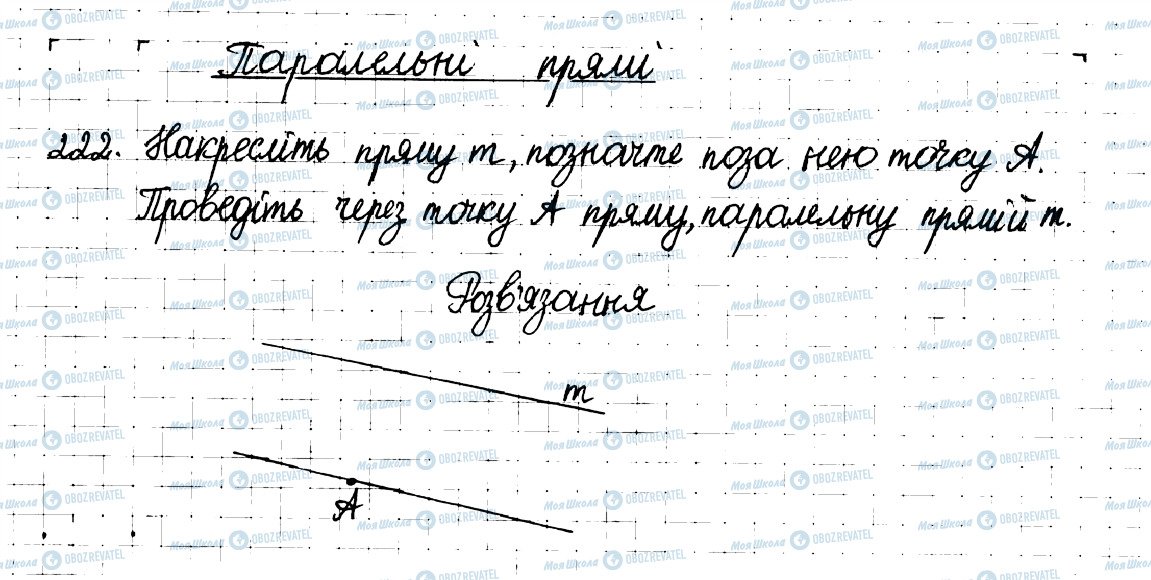 Паралельні прямі
222. Накресліть пряму m, позначте поза нею точку A.
Проведіть через точку A пряму, паралельну прямій m.
Розв'язання
m
A
МояШкола OBOZREVATEL